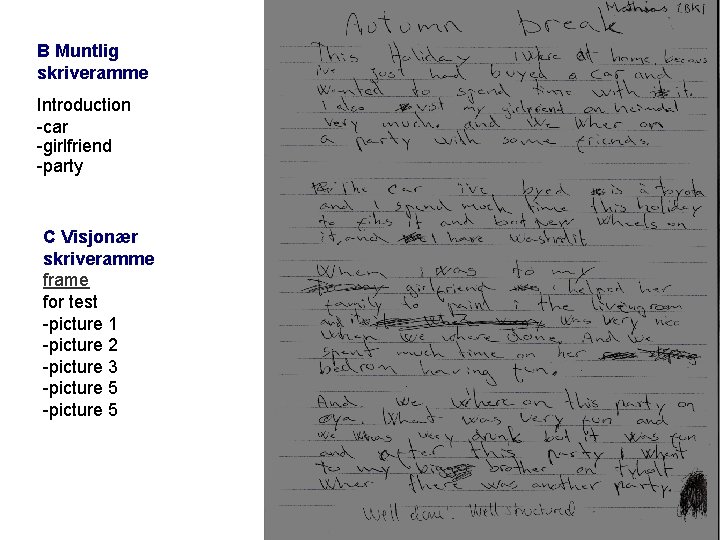 B Muntlig
skriveramme
Introduction
-car
-girlfriend
-party
C Visjonær
skriveramme
frame
for test
-picture 1
-picture 2
-picture 3
-picture 5
-picture 5
Mathias (BK)
Autumn break
This Holiday I where at home, becaus
i've just had buyed a car and
wanted to spend time with it.
I also visit my girlfriend on heimdal
very much. and we wher on
a party with some friends.
The car i've byed is a toyota
and I spend much time this holiday
to fiks it and but new wheels on
it, and I have
When i was to my
girlfriend i helped her
family to paint i the livingroom
and it was very nice
when we where done. And we
spent much time on her
bedrom having fun.
And we where on this party on
øya. What was very fun and
we was very drunk but it was fun
and after this party I whent
to my brother on tyholt
wher there was another party.
Well done! Well structured